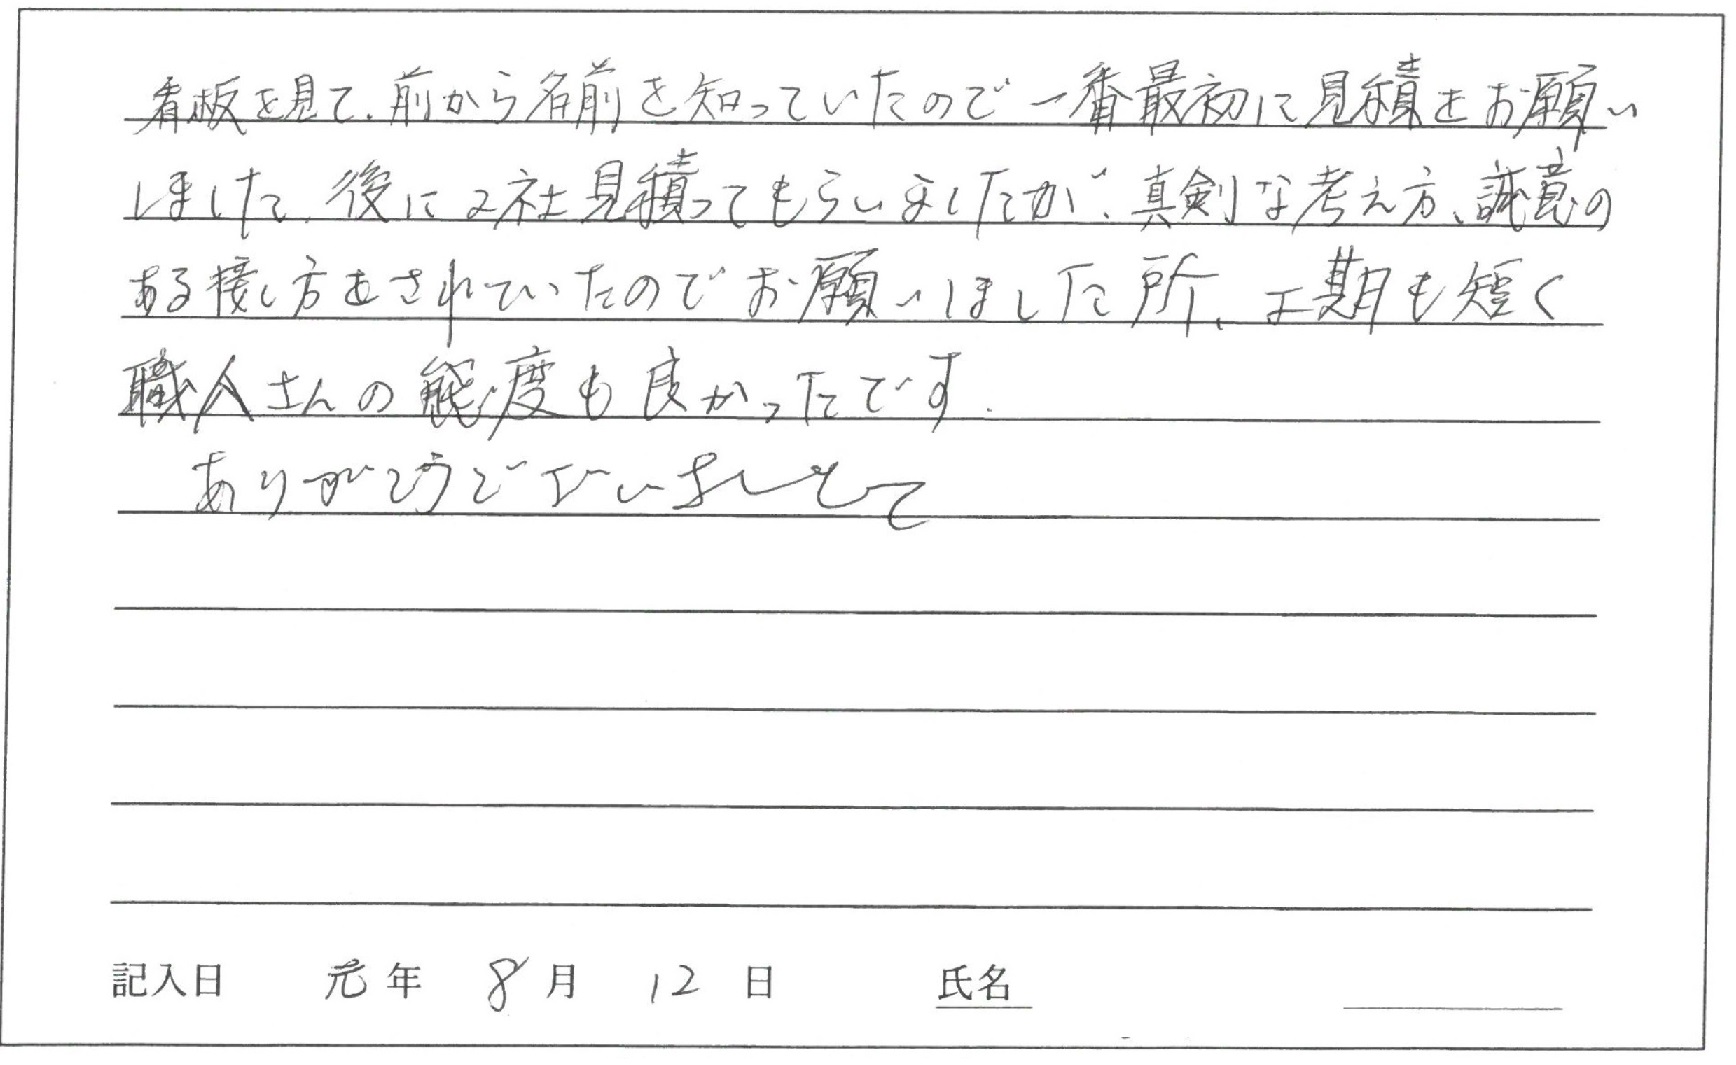 看板を見て、前から名前を知っていたので一番最初に見積をお願い
しました、後に2社見積ってもらいましたが、真剣な考え方、誠意の
ある接し方をされていたのでお願いしました所、工期も短く
職人さんの態度も良かったです.
ありがとうございました
記入日 元年 8月 12日 氏名